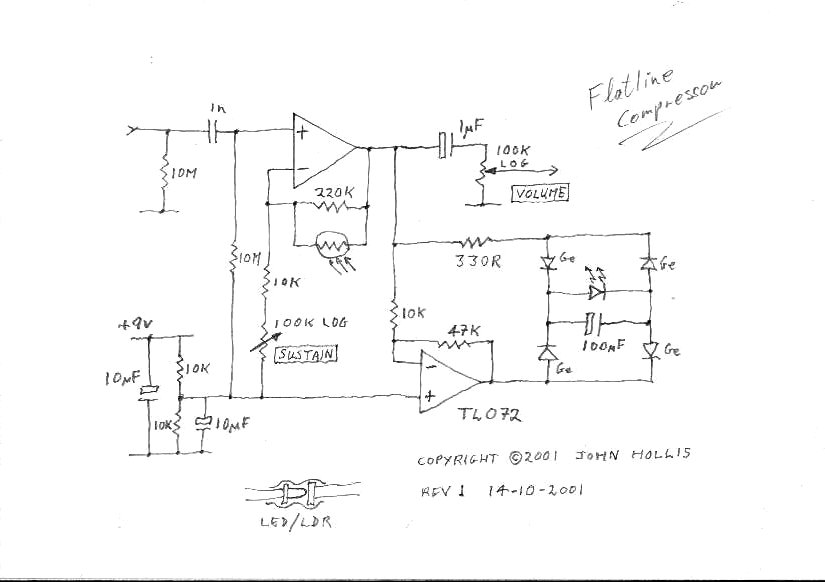 Flatline
Compressor
1n
1µF
100K
LOG
VOLUME
+
-
10M
220K
10M
10K
330R
Ge
Ge
10K
47K
100K LOG
SUSTAIN
+9V
10µF
10K
10K
10µF
100µF
Ge
Ge
-
+
TL072
COPYRIGHT ©2001 JOHN HOLLIS
REV 1 14-10-2001
LED/LDR